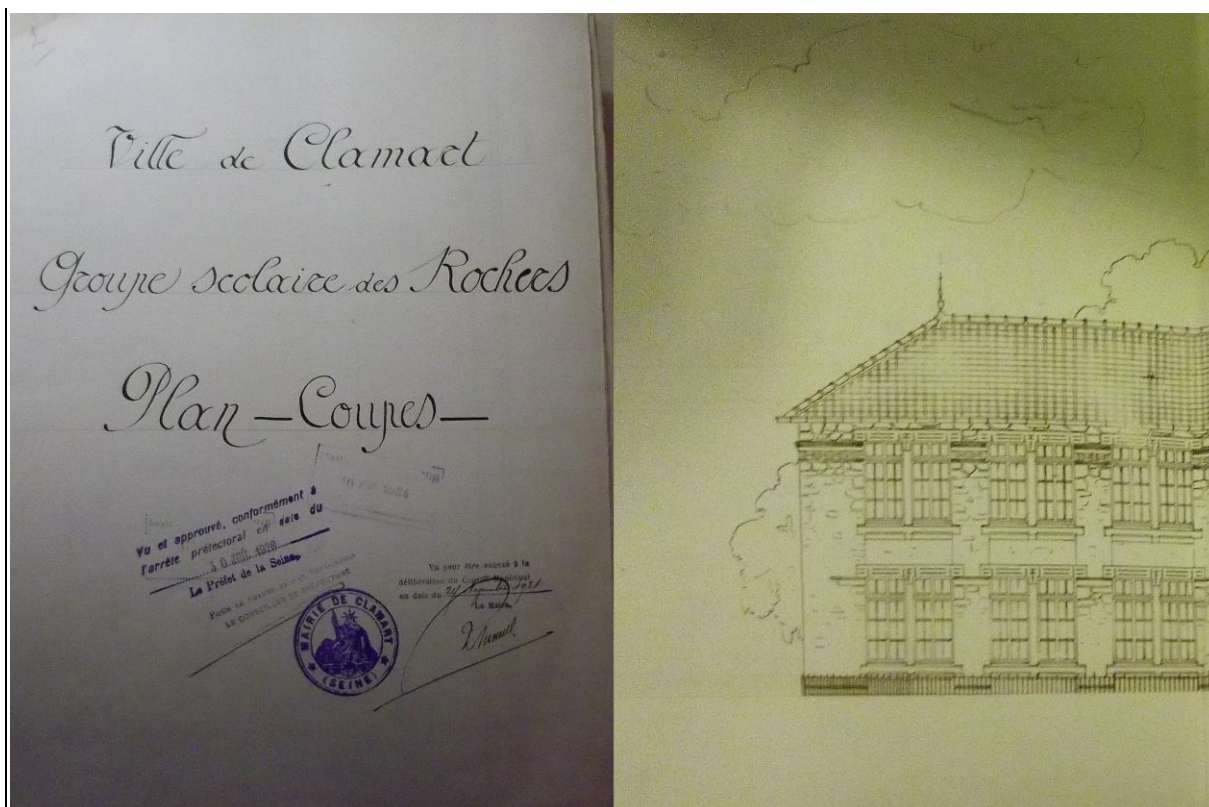 Ville de Clamart
Groupe scolaire des Rochers
Plan — Coupes —
Vu et approuvé, conformément à
l'arrêté préfectoral en date du
1926
Le Préfet de la Seine,
LE CONSEILLER DE PRÉFECTURE
Vu pour être annexé à la
délibération du Conseil Municipal
en date du
Le Maire,
MAIRIE DE CLAMART
(SEINE)